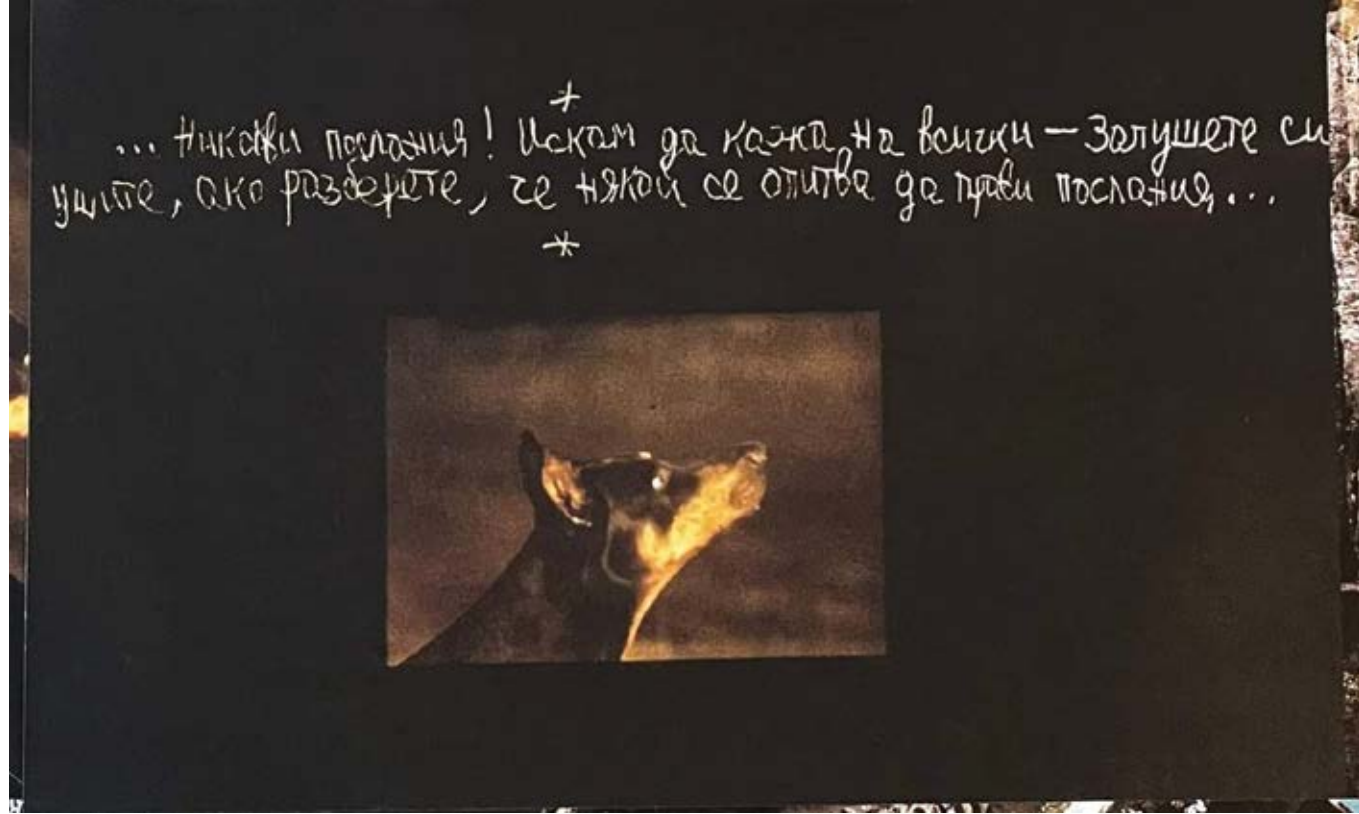 *
... Никакви послания! Искам да кажа на всички — Запушете си
ушите, ако разберете, че някой се опитва да прави послания...
*